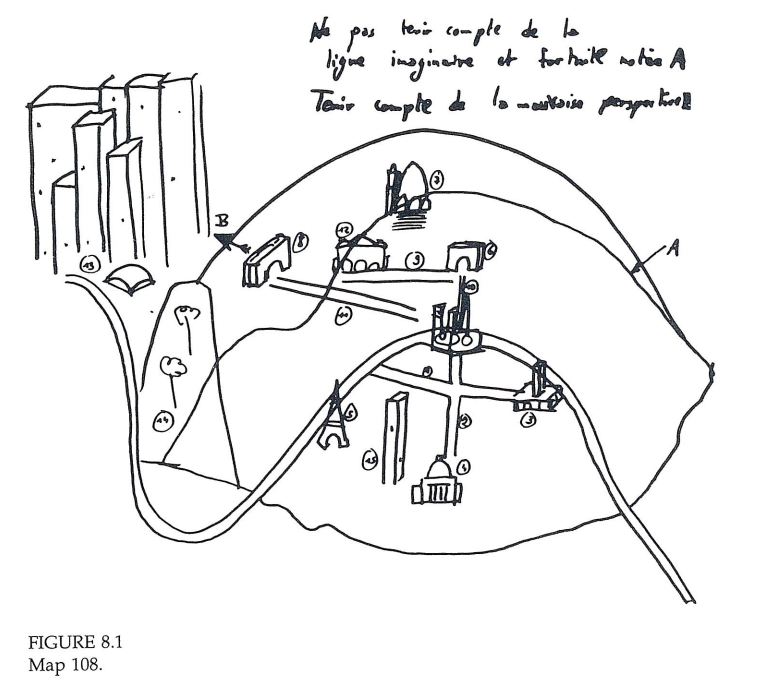 Ne pas tenir compte de la
ligne imaginaire et fortuite notée A
Tenir compte de la mauvaise perspective
7
B
8
12
9
6
A
13
10
11
4
14
5
2
3
15
1
FIGURE 8.1
Map 108.